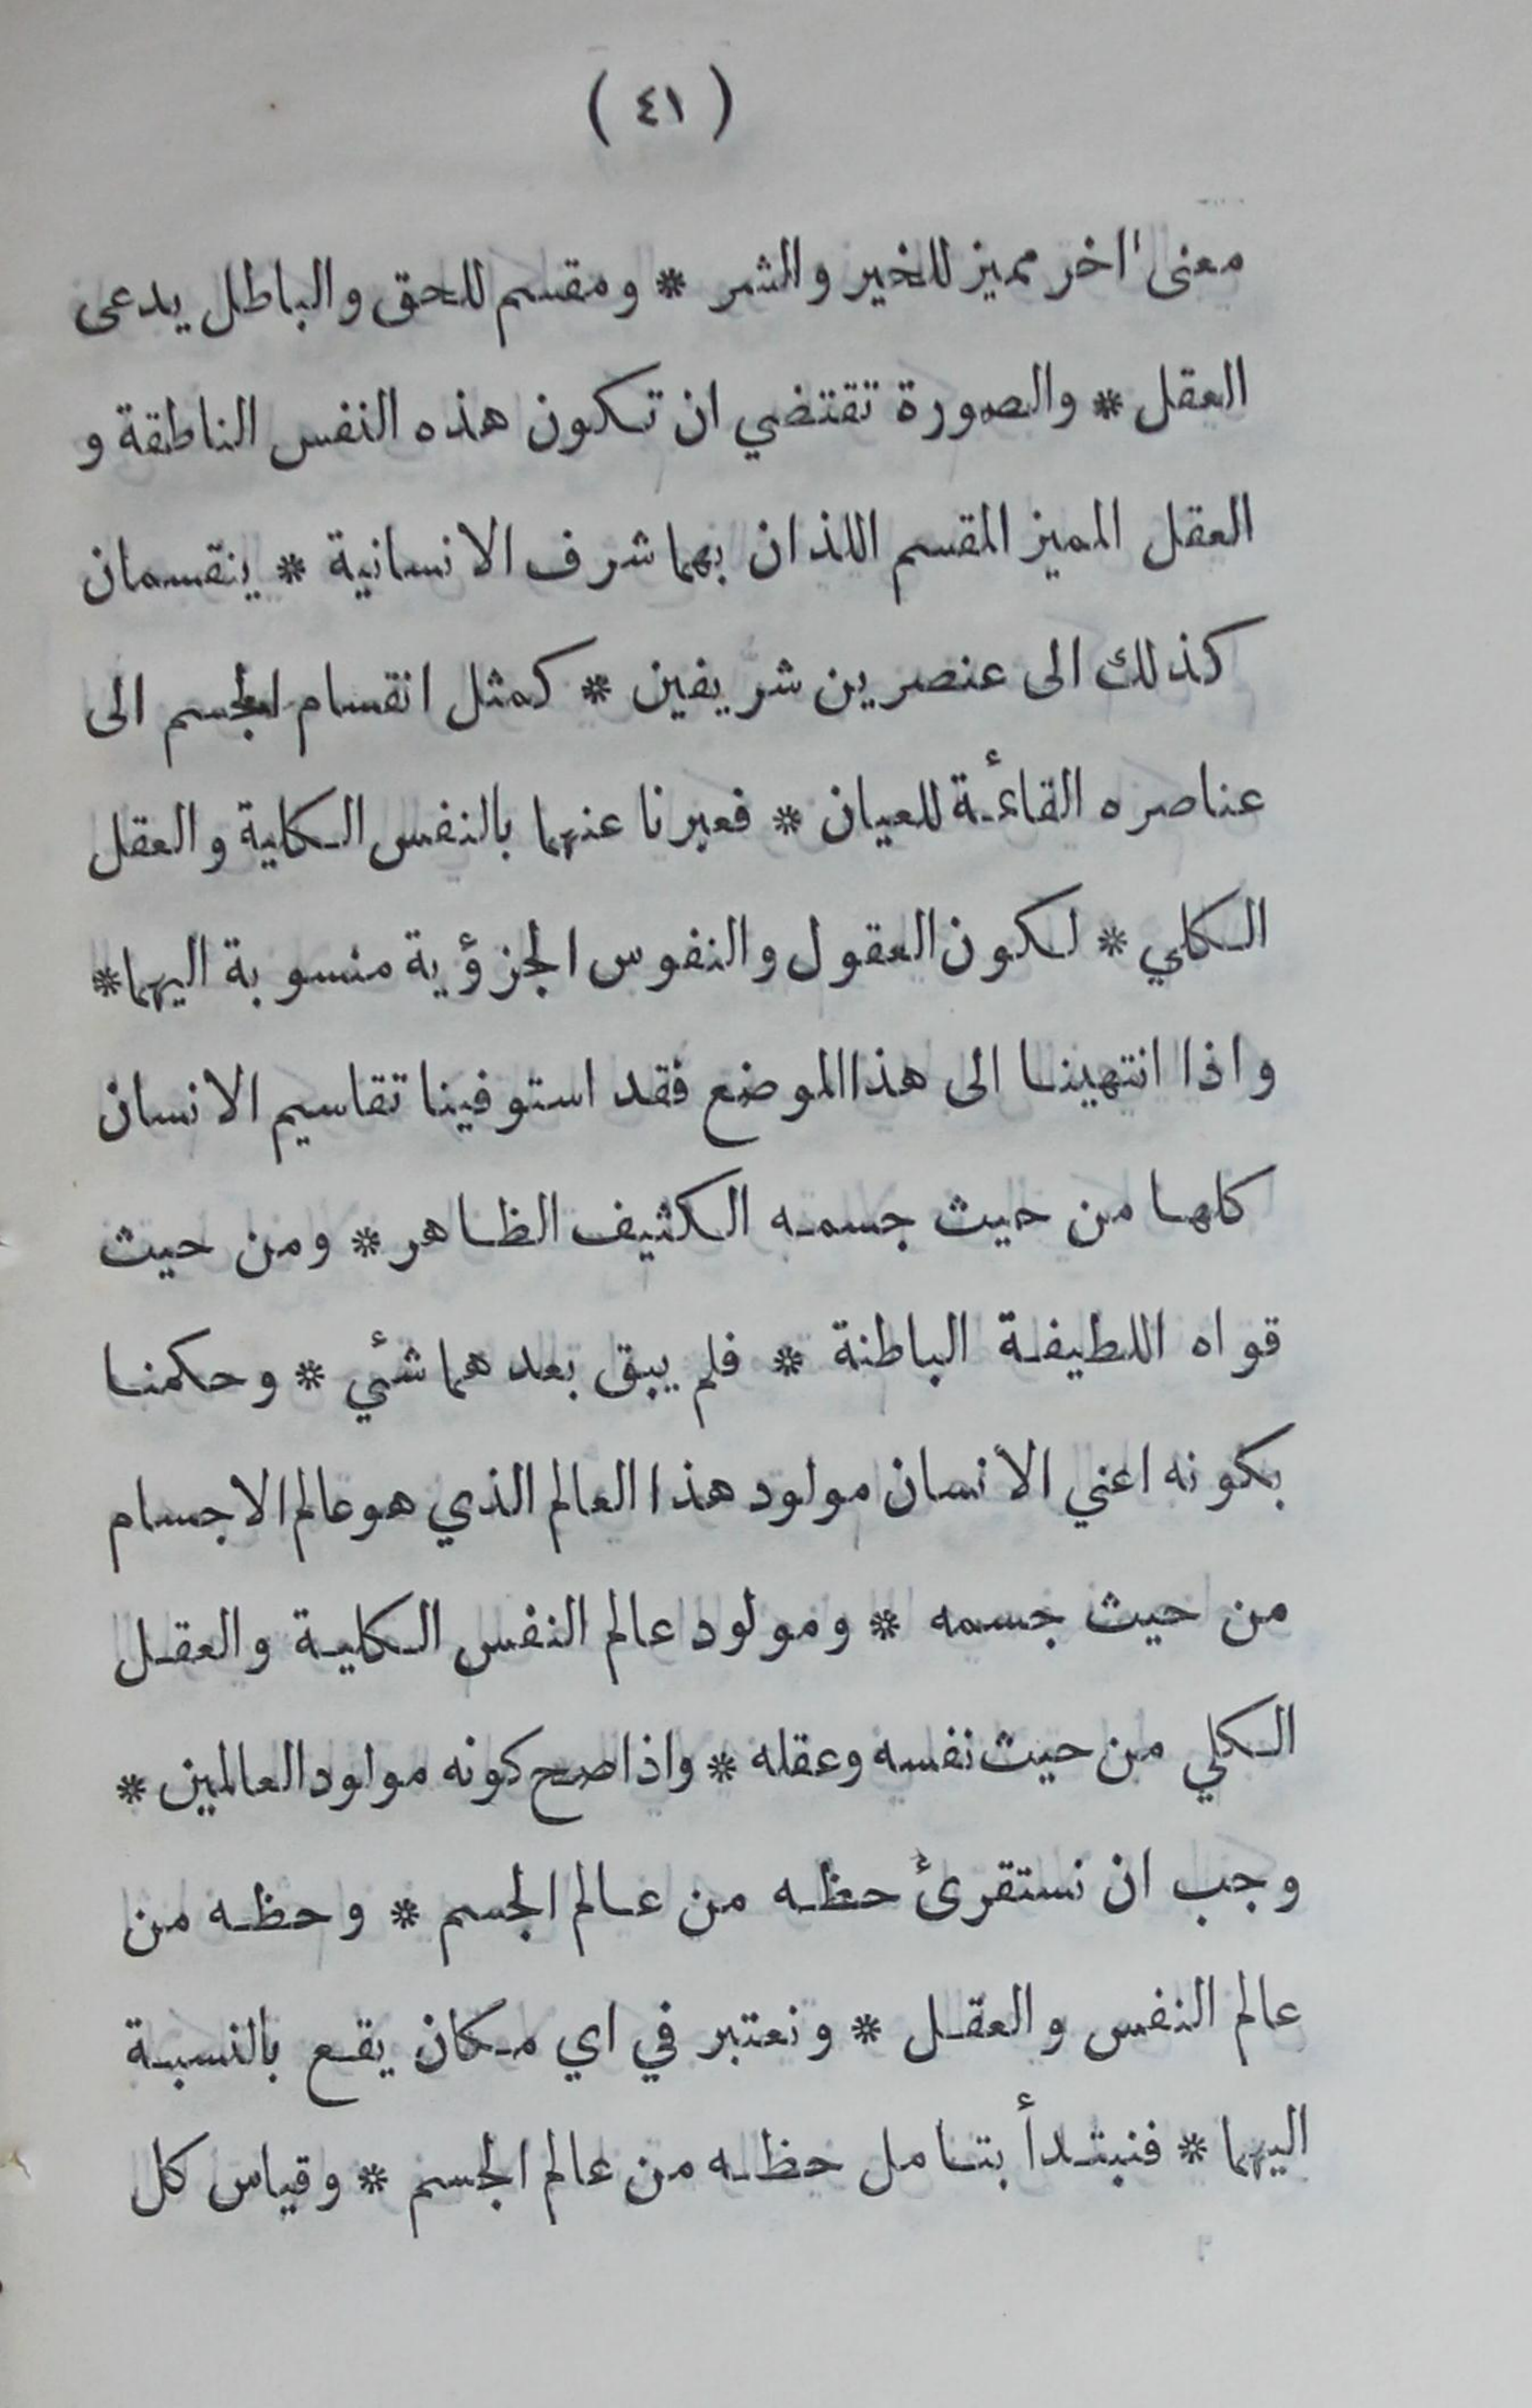 ( ٤١ )
معنى اخر مميز للخير والشر * ومقسم للحق والباطل يدعى
العقل * والصورة تقتضي ان تكون هذه النفس الناطقة و
العقل المميز المقسم اللذان بهما شرف الانسانية * ينقسمان
كذلك الى عنصرين شريفين * كمثل انقسام الجسم الى
عناصره القائمة للعيان * فعبرنا عنهما بالنفس الكلية والعقل
الكلي * لكون العقول والنفوس الجزؤية منسوبة اليهما *
واذا انتهينا الى هذا الموضع فقد استوفينا تقاسيم الانسان
كلها من حيث جسمه الكثيف الظاهر * ومن حيث
قواه اللطيفة الباطنة * فلم يبق بعدهما شئي * وحكمنا
بكونه اعني الأنسان مولود هذا العالم الذي هو عالم الاجسام
من حيث جسمه * ومولود عالم النفس الكلية والعقل
الكلي من حيث نفسه وعقله * واذا صح كونه مولود العالمين *
وجب ان نستقرئ حظه من عالم الجسم * وحظه من
عالم النفس والعقل * ونعتبر في اي مكان يقع بالنسبة
اليهما * فنبتدأ بتامل حظه من عالم الجسم * وقياس كل